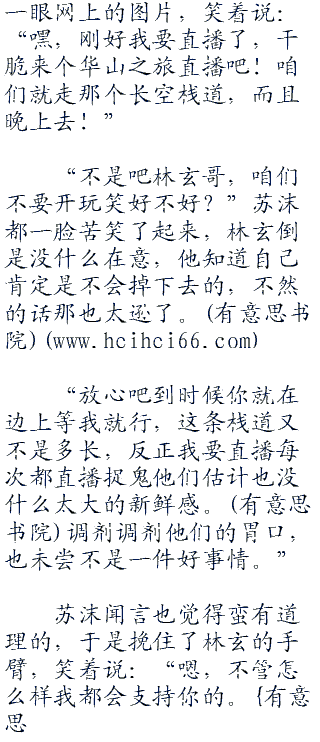 一眼网上的图片，笑着说：
“嘿，刚好我要直播了，干
脆来个华山之旅直播吧！咱
们就走那个长空栈道，而且
晚上去！”
“不是吧林玄哥，咱们
不要开玩笑好不好？”苏沫
都一脸苦笑了起来，林玄倒
是没什么在意，他知道自己
肯定是不会掉下去的，不然
的话那也太逊了。(有意思书
院)(www.hcihci66.com)
“放心吧到时候你就在
边上等我就行，这条栈道又
不是多长，反正我要直播每
次都直播捉鬼他们估计也没
什么太大的新鲜感。(有意思
书院)调剂调剂他们的胃口，
也未尝不是一件好事情。”
苏沫闻言也觉得蛮有道
理的，于是挽住了林玄的手
臂，笑着说：“嗯，不管怎
么样我都会支持你的。{有意
思